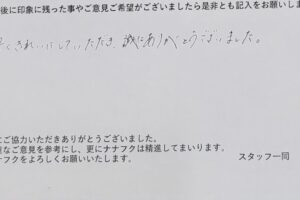 後に印象に残った事やご意見ご希望がございましたら是非とも記入をお願いしま
くきれいにしていただき、誠にありがとうございました。
ご協力いただきありがとうございました。
なご意見を参考にし、更にナナフクは精進してまいります。
フクをよろしくお願いいたします。
スタッフ一同